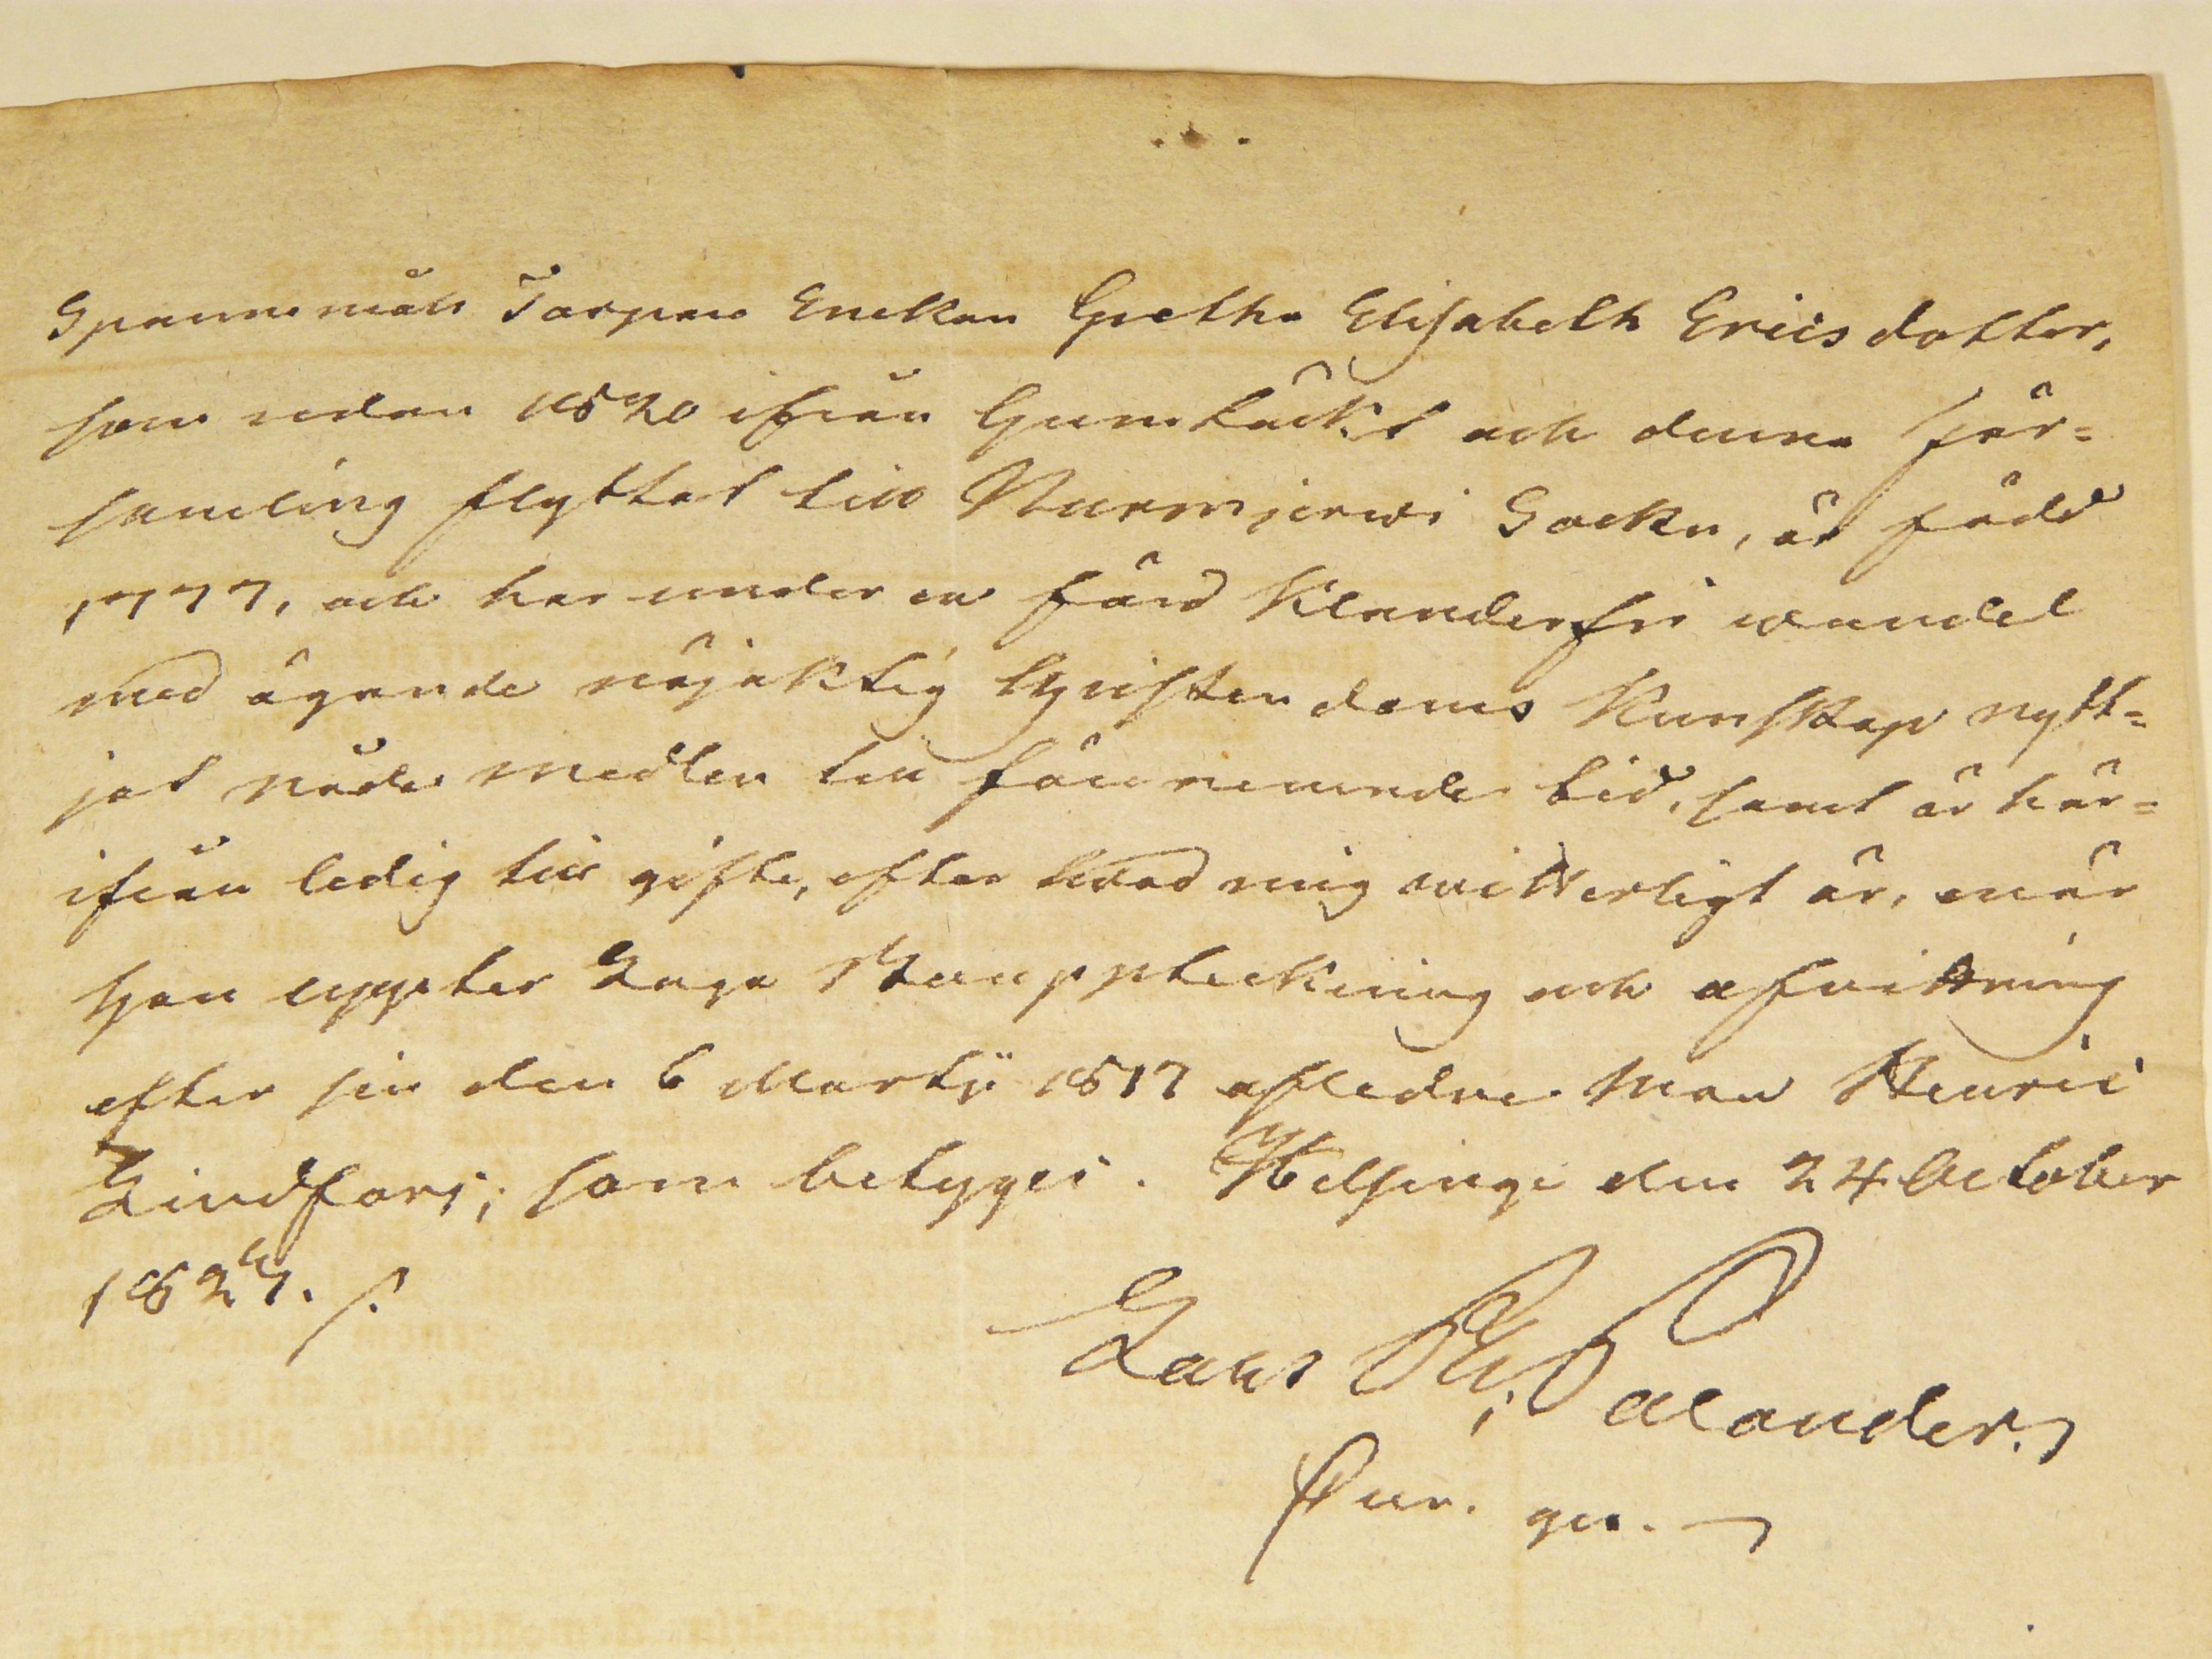 Spannmåls Torpare Enckan Gretha Elisabeth Ericsdotter,
som redan 1820 ifrån Gumtäckt och denna för=
samling flyttat till Nurmijerwi Sockn, är född
1777, och har under en förd Klanderfri wandel
med ägande nöjaktig Christendoms Kunskap nytt=
jat nåde medlen till sednare tid, samt är här=
ifrån ledig till gifte, efter hwad mig witterligt är, när
hon uppter Laga Bouppteckning och afwittring
efter sin den 6 Martji 1817 afledne Man Henric
Lindfors; som betygas. Helsinge den 24 October
1827.
Lars Palander.